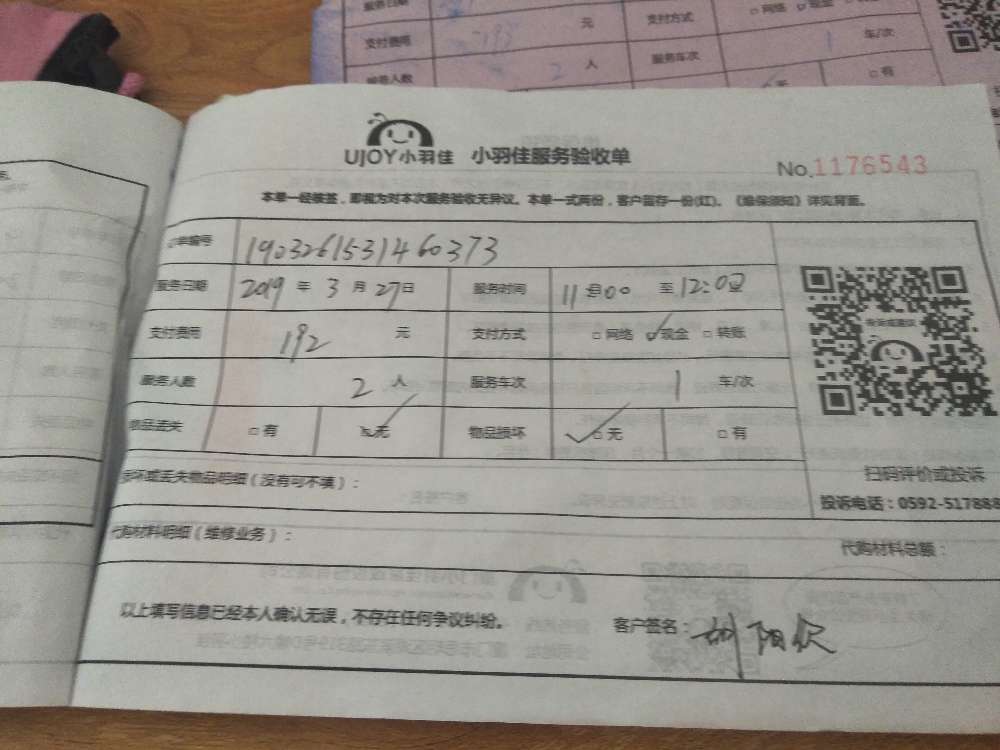 服务日期
支付费用 193 元 支付方式 □网络 现金 □
服务人数 2 人 服务车次 1 车/次
无 □有
UJOY小羽佳 小羽佳服务验收单
No.1176543
本单一经核签，即视为对本次服务验收无异议。本单一式两份，客户留存一份(红)。《维保须知》详见背面。
订单编号 1903261531460373
服务日期 2019 年 3 月 27日 服务时间 11:00 至 12:00
支付费用 192 元 支付方式 □网络 ☑现金 □转账
服务人数 2 人 服务车次 1 车/次
物品丢失 □有 ☑无 物品损坏 ☑无 □有
扫码评价或投诉
损坏或丢失物品明细（没有可不填）：
投诉电话：0592-517888
代购材料明细（维修业务）：
代购材料总额：
以上填写信息已经本人确认无误，不存在任何争议纠纷。
客户签名：